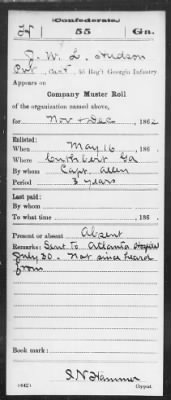 Confederate.
H 55 Ga.
J. W. L. Hudson
Pvt, Co. 55 Reg't Georgia Infantry
Appears on
Company Muster Roll
of the organization named above,
for Nov & Dec, 1862
Enlisted:
When May 16, 186
Where Cuthbert Ga
By whom Capt. Allen
Period 3 years
Last paid:
By whom
To what time, 186 .
Present or absent Absent
Remarks: Sent to Atlanta Hospital
July 30. Not since heard
from
Book mark:
(642) J. N. Hammer
Copyist.